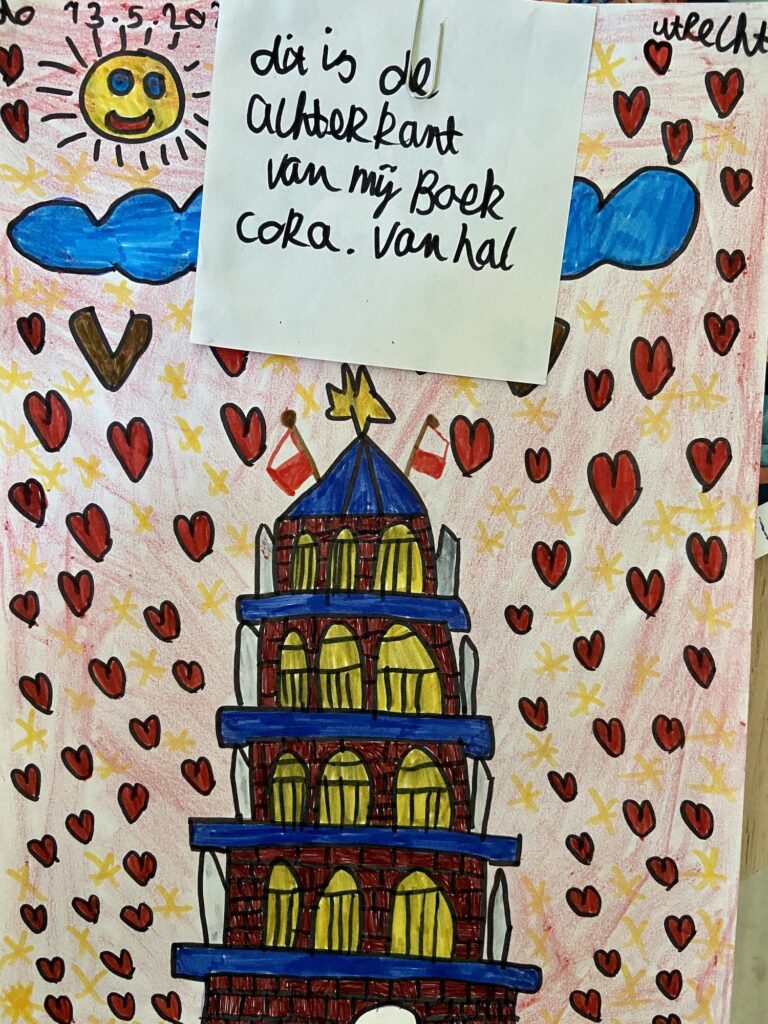 do 13.5.202
utRecht
dit is de
achterkant
van mij Boek
cora. van hal